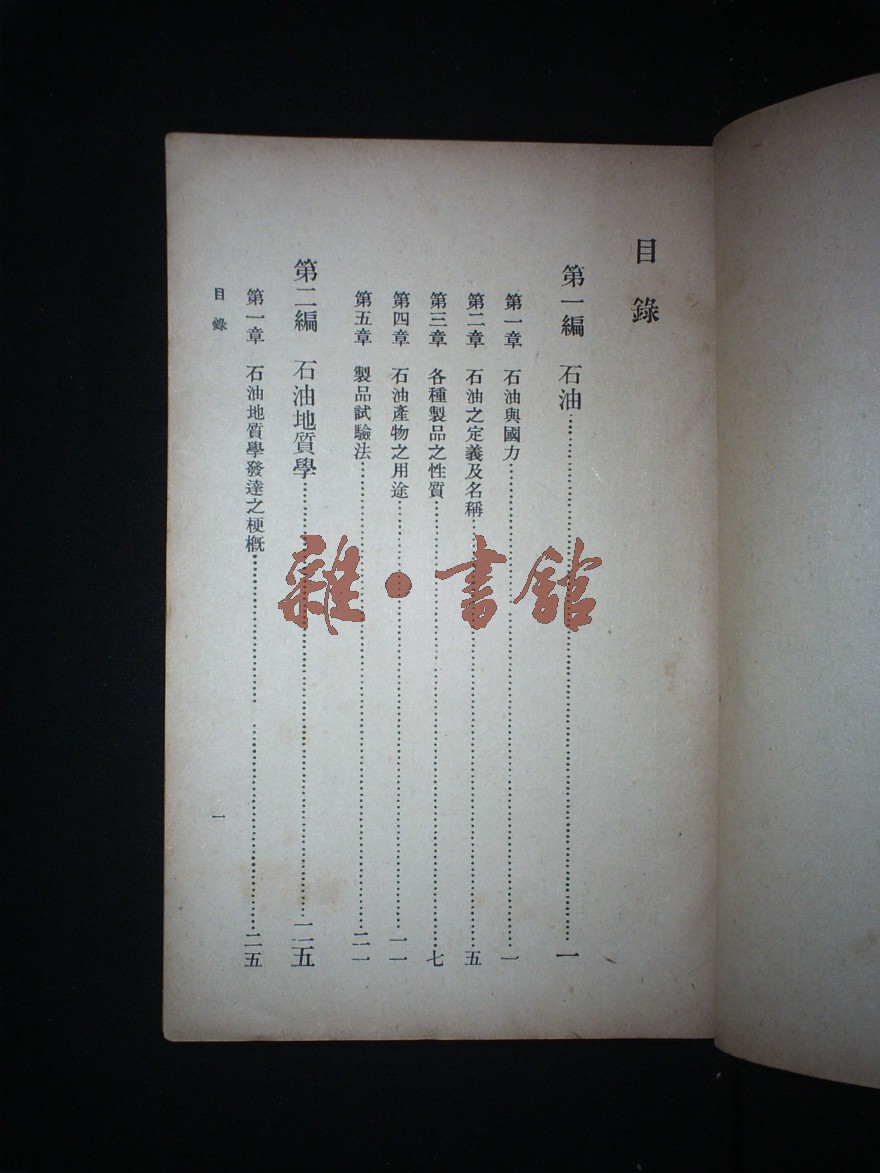 目錄
第一編 石油……一
第一章 石油與國力……一
第二章 石油之定義及名稱……五
第三章 各種製品之性質……七
第四章 石油產物之用途……一一
第五章 製品試驗法……二一
第二編 石油地質學……二五
第一章 石油地質學發達之梗概……二五
目錄
一
雜·書館